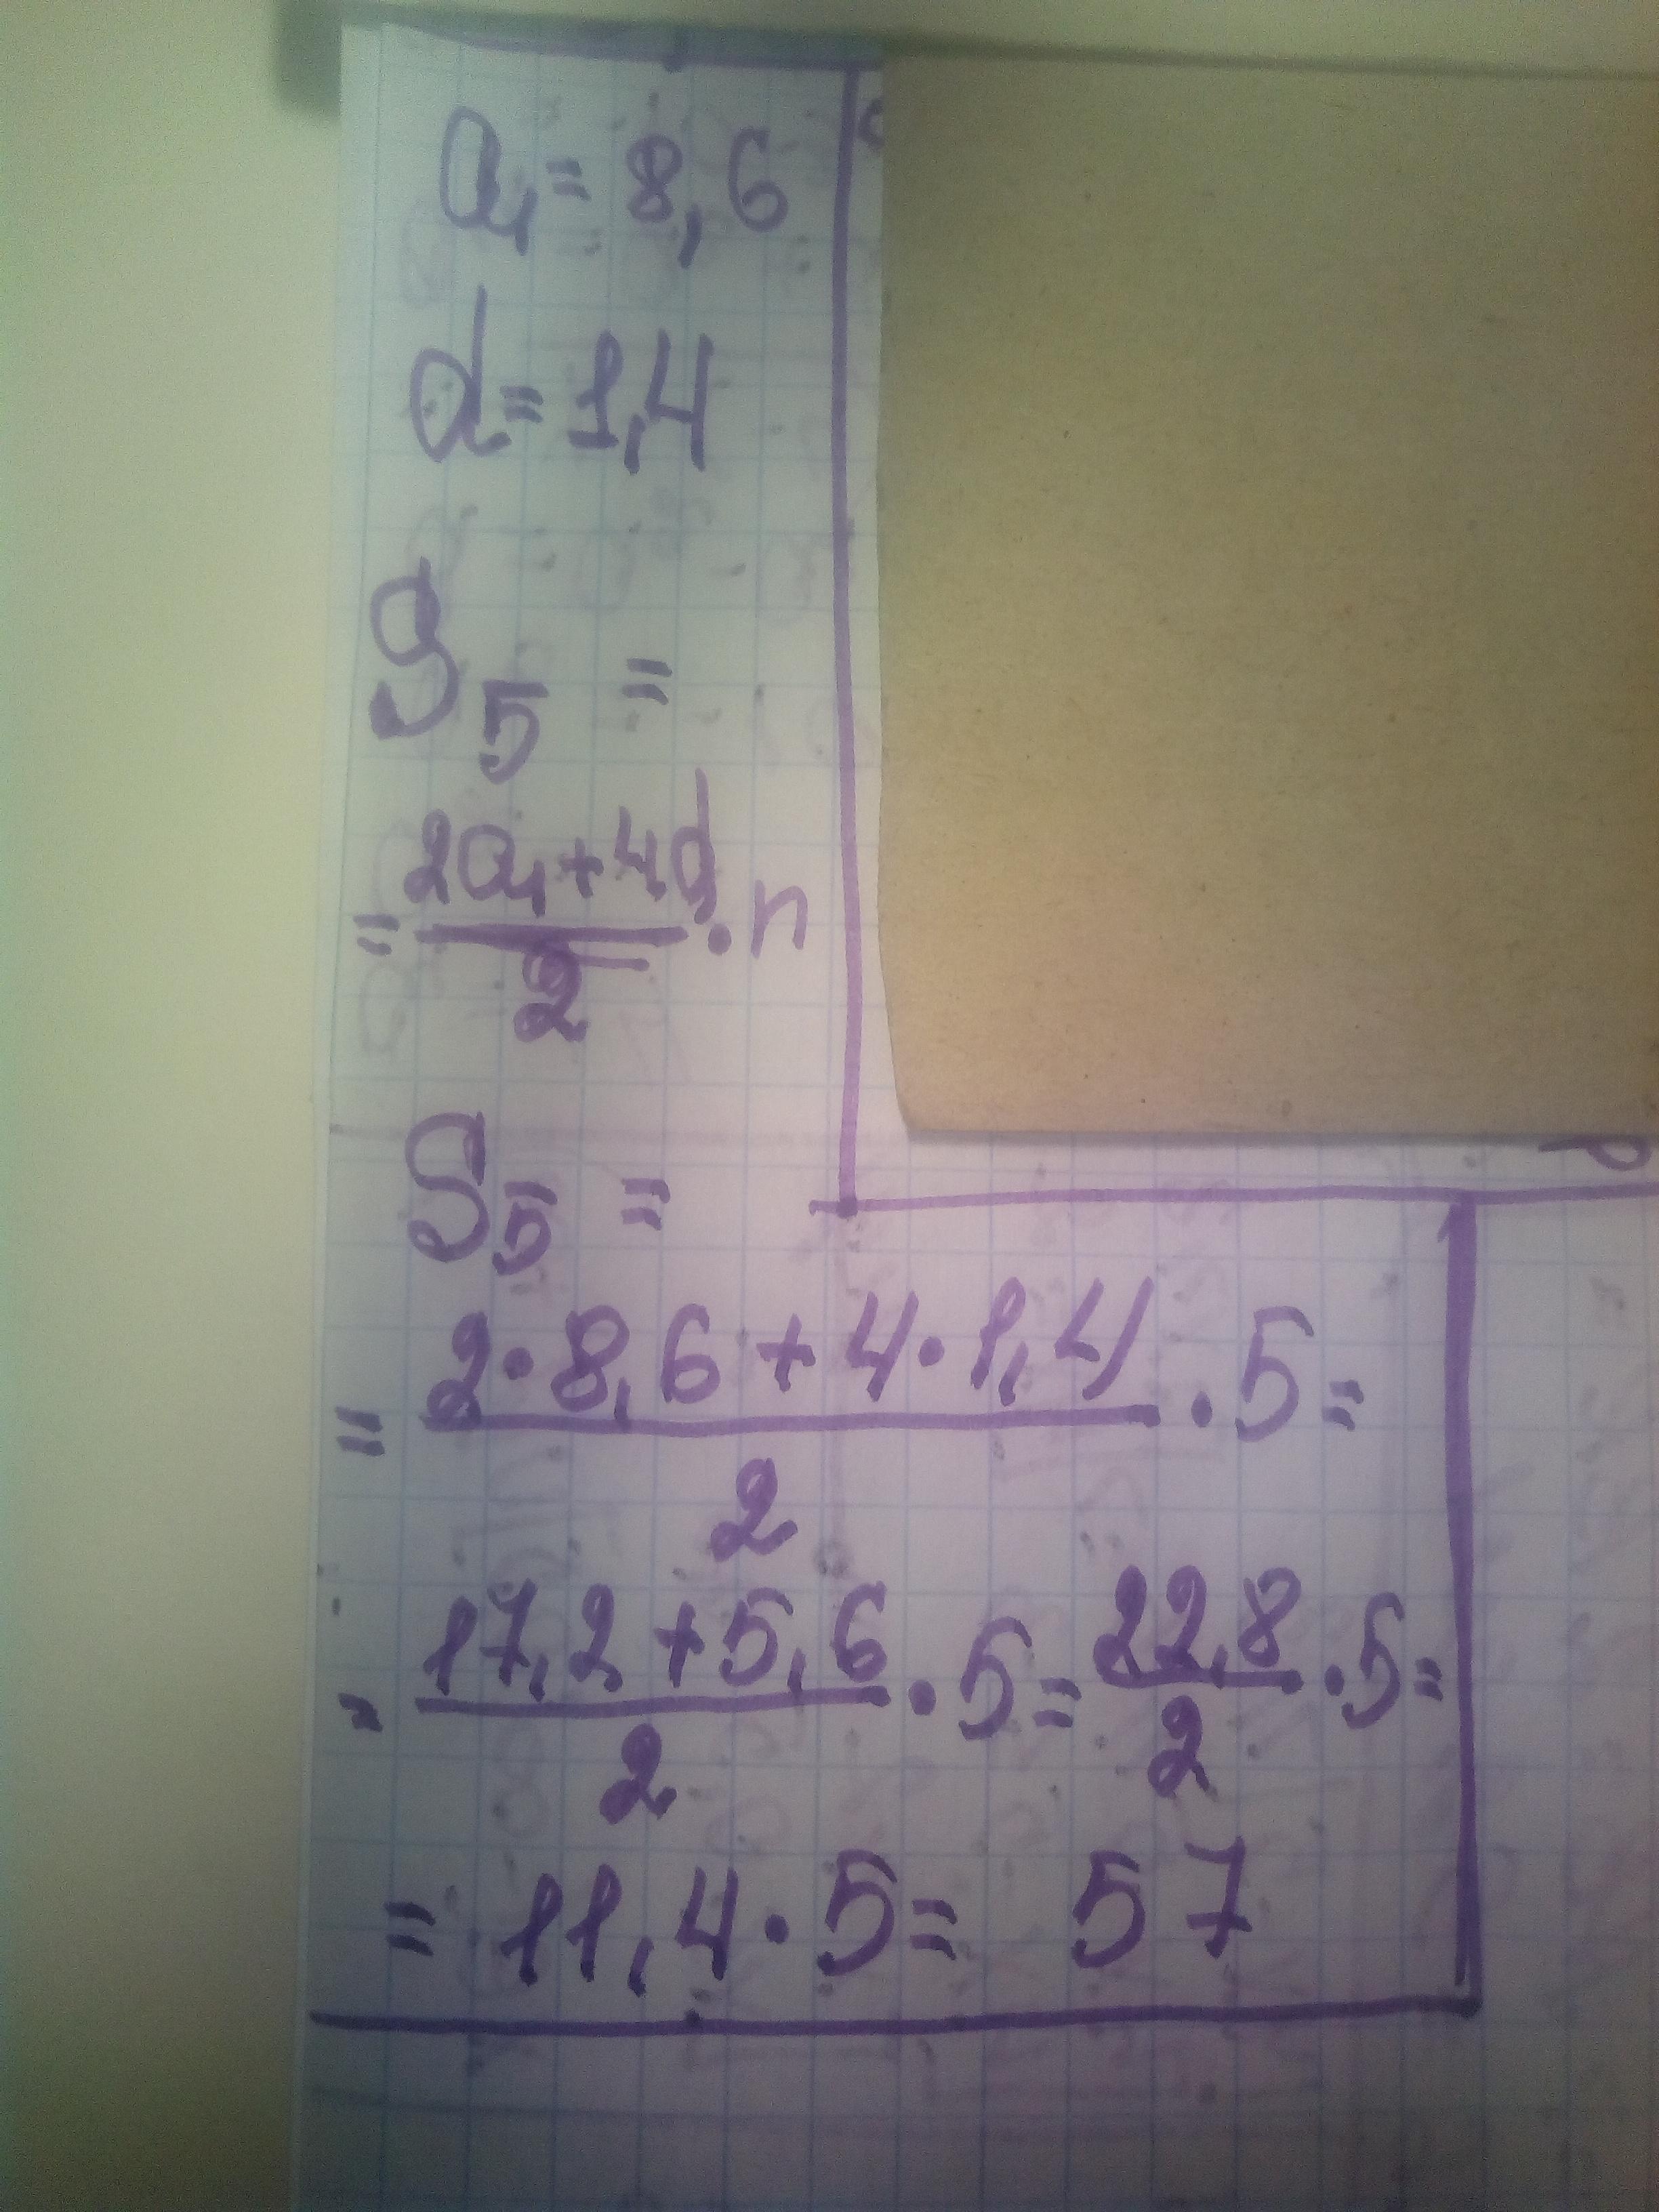 a₁ = 8,6
d = 1,4
S₅ =
= (2a₁ + 4d)/2 · n
S₅ =
= (2 · 8,6 + 4 · 1,4)/2 · 5 =
= (17,2 + 5,6)/2 · 5 = 22,8/2 · 5 =
= 11,4 · 5 = 57